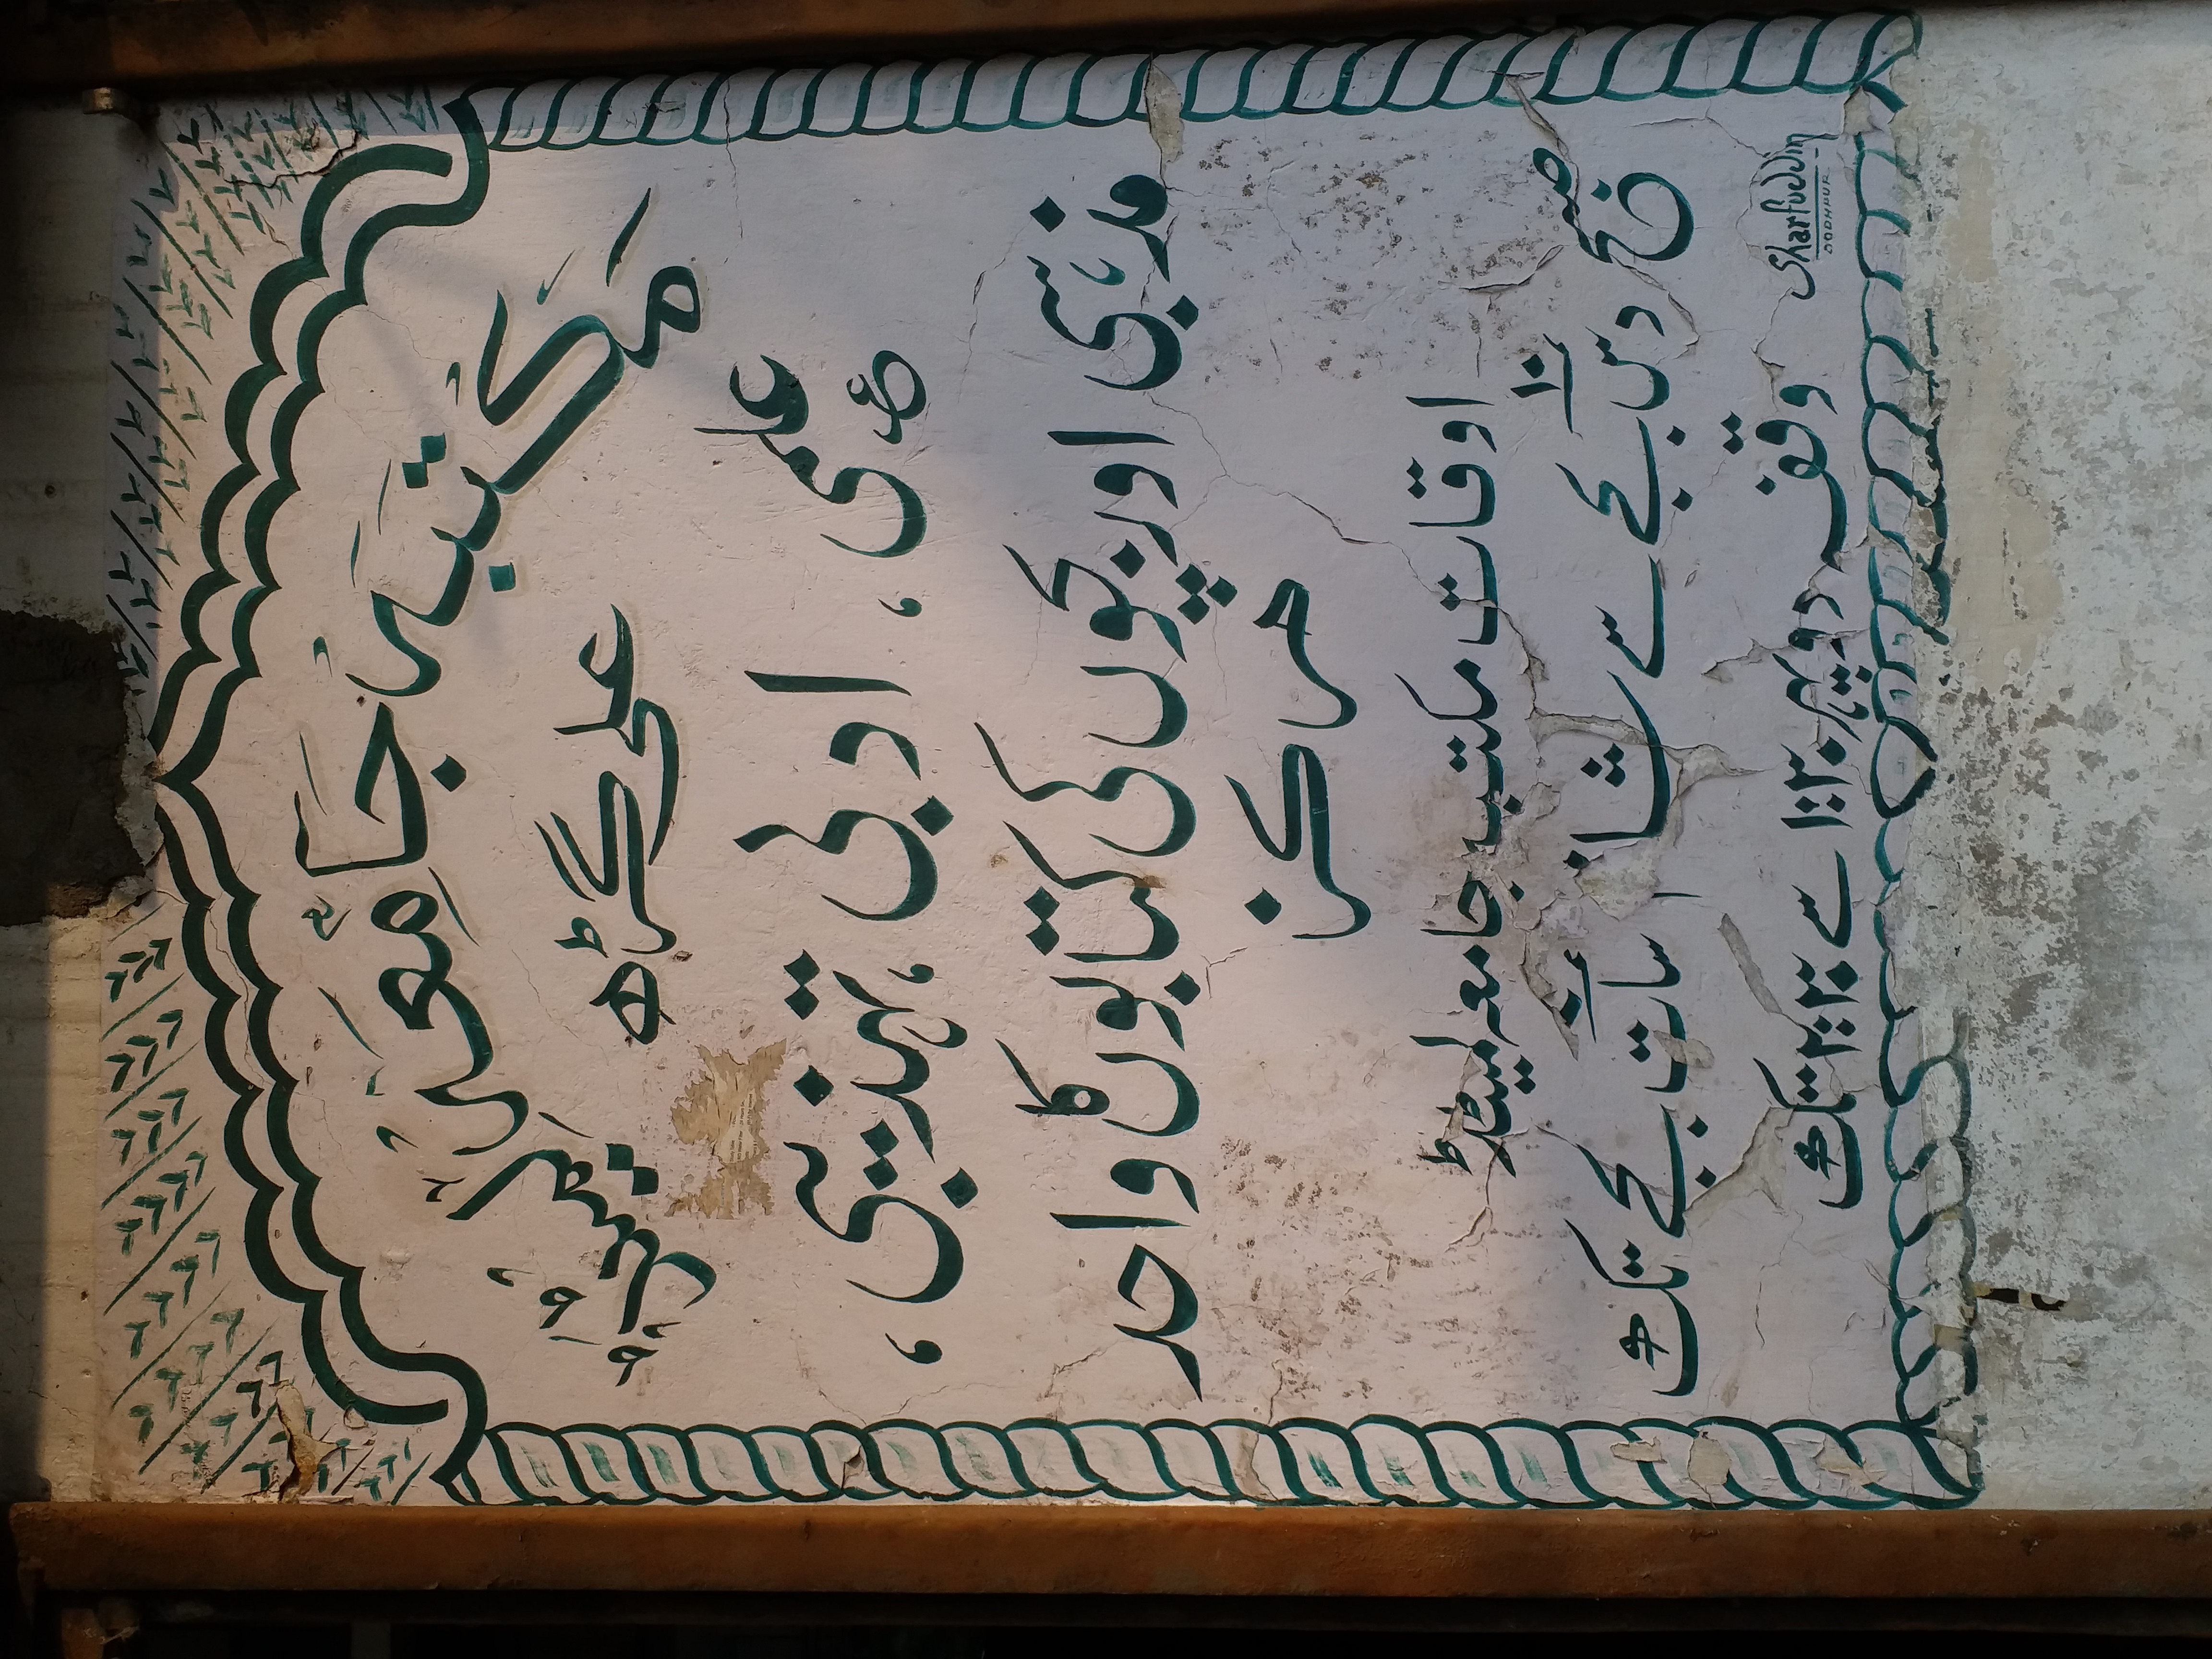 مکتبہ جامعہ لمیٹڈ
علی گڑھ
علمی، ادبی، تہذیبی،
مذہبی اور بچوں کی کتابوں کا واحد
مرکز
اوقات مکتبہ جامعہ لمیٹڈ
۱۰
صبح دس بجے سے شام سات بجے تک
وقفہ دوپہر ۱:۳۰ سے ۲:۳۰ تک
Sharfuddin
DODHPUR